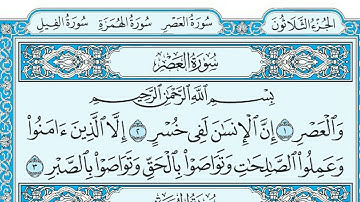 الجزء الثلاثون سورة العصر سورة الهمزة سورة الفيل
سُورَةُ الْعَصْرِ
بِسْمِ اللَّهِ الرَّحْمَٰنِ الرَّحِيمِ
وَالْعَصْرِ ١ إِنَّ الْإِنسَٰنَ لَفِى خُسْرٍ ٢ إِلَّا الَّذِينَ ءَامَنُوا۟
وَعَمِلُوا۟ الصَّٰلِحَٰتِ وَتَوَاصَوْا۟ بِالْحَقِّ وَتَوَاصَوْا۟ بِالصَّبْرِ ٣